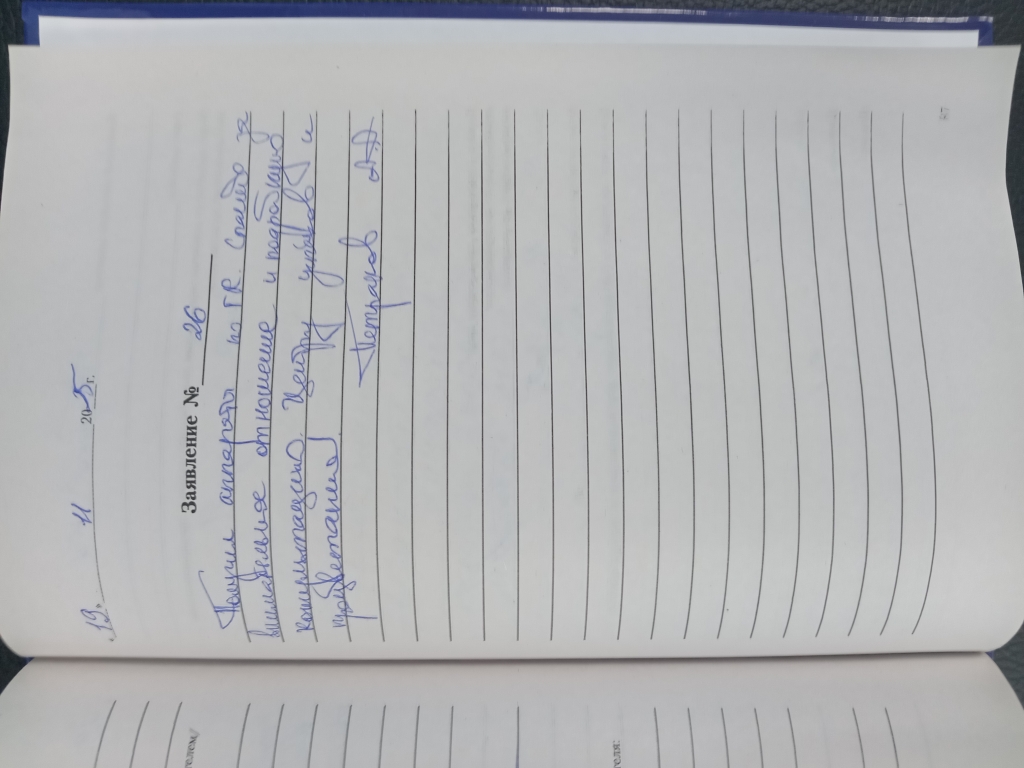 „19" 11 2025 г.
Заявление № 26
Получил аппараты по ГR. Спасибо за
внимательное отношение и подробную
консультацию. Центру успехов и
процветания!
Петраков
телем/
теля: